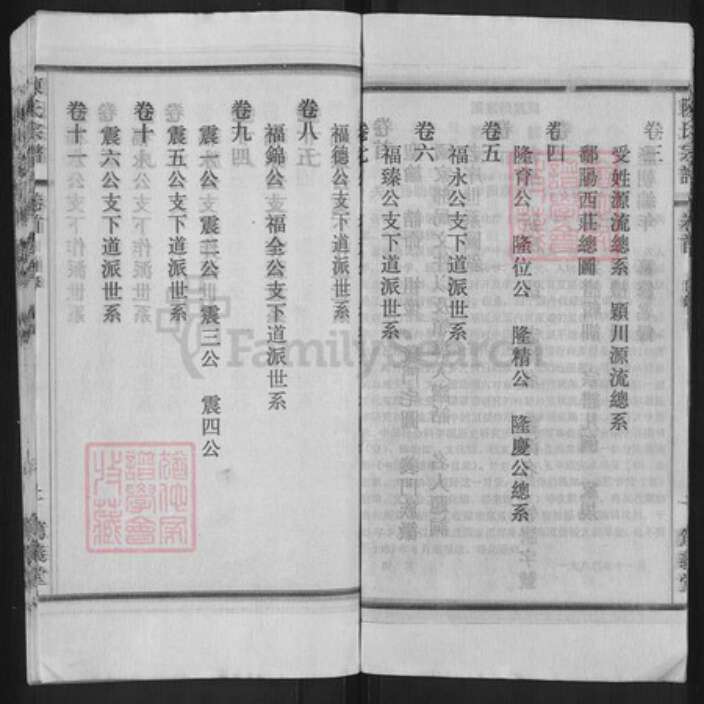 卷三
受姓源流總系　潁川源流總系
鄱陽西莊總圖
卷四
隆育公　隆位公　隆精公　隆慶公總系
卷五
福永公支下道派世系
卷六
福臻公支下道派世系
卷七
福德公支下道派世系
卷八
福錦公　福全公支下道派世系
卷九
震一公　震二公　震三公　震四公
卷十
震五公支下道派世系
震六公支下道派世系
卷十一
陳氏宗譜
卷首
陳氏宗譜
卷首
FamilySearch